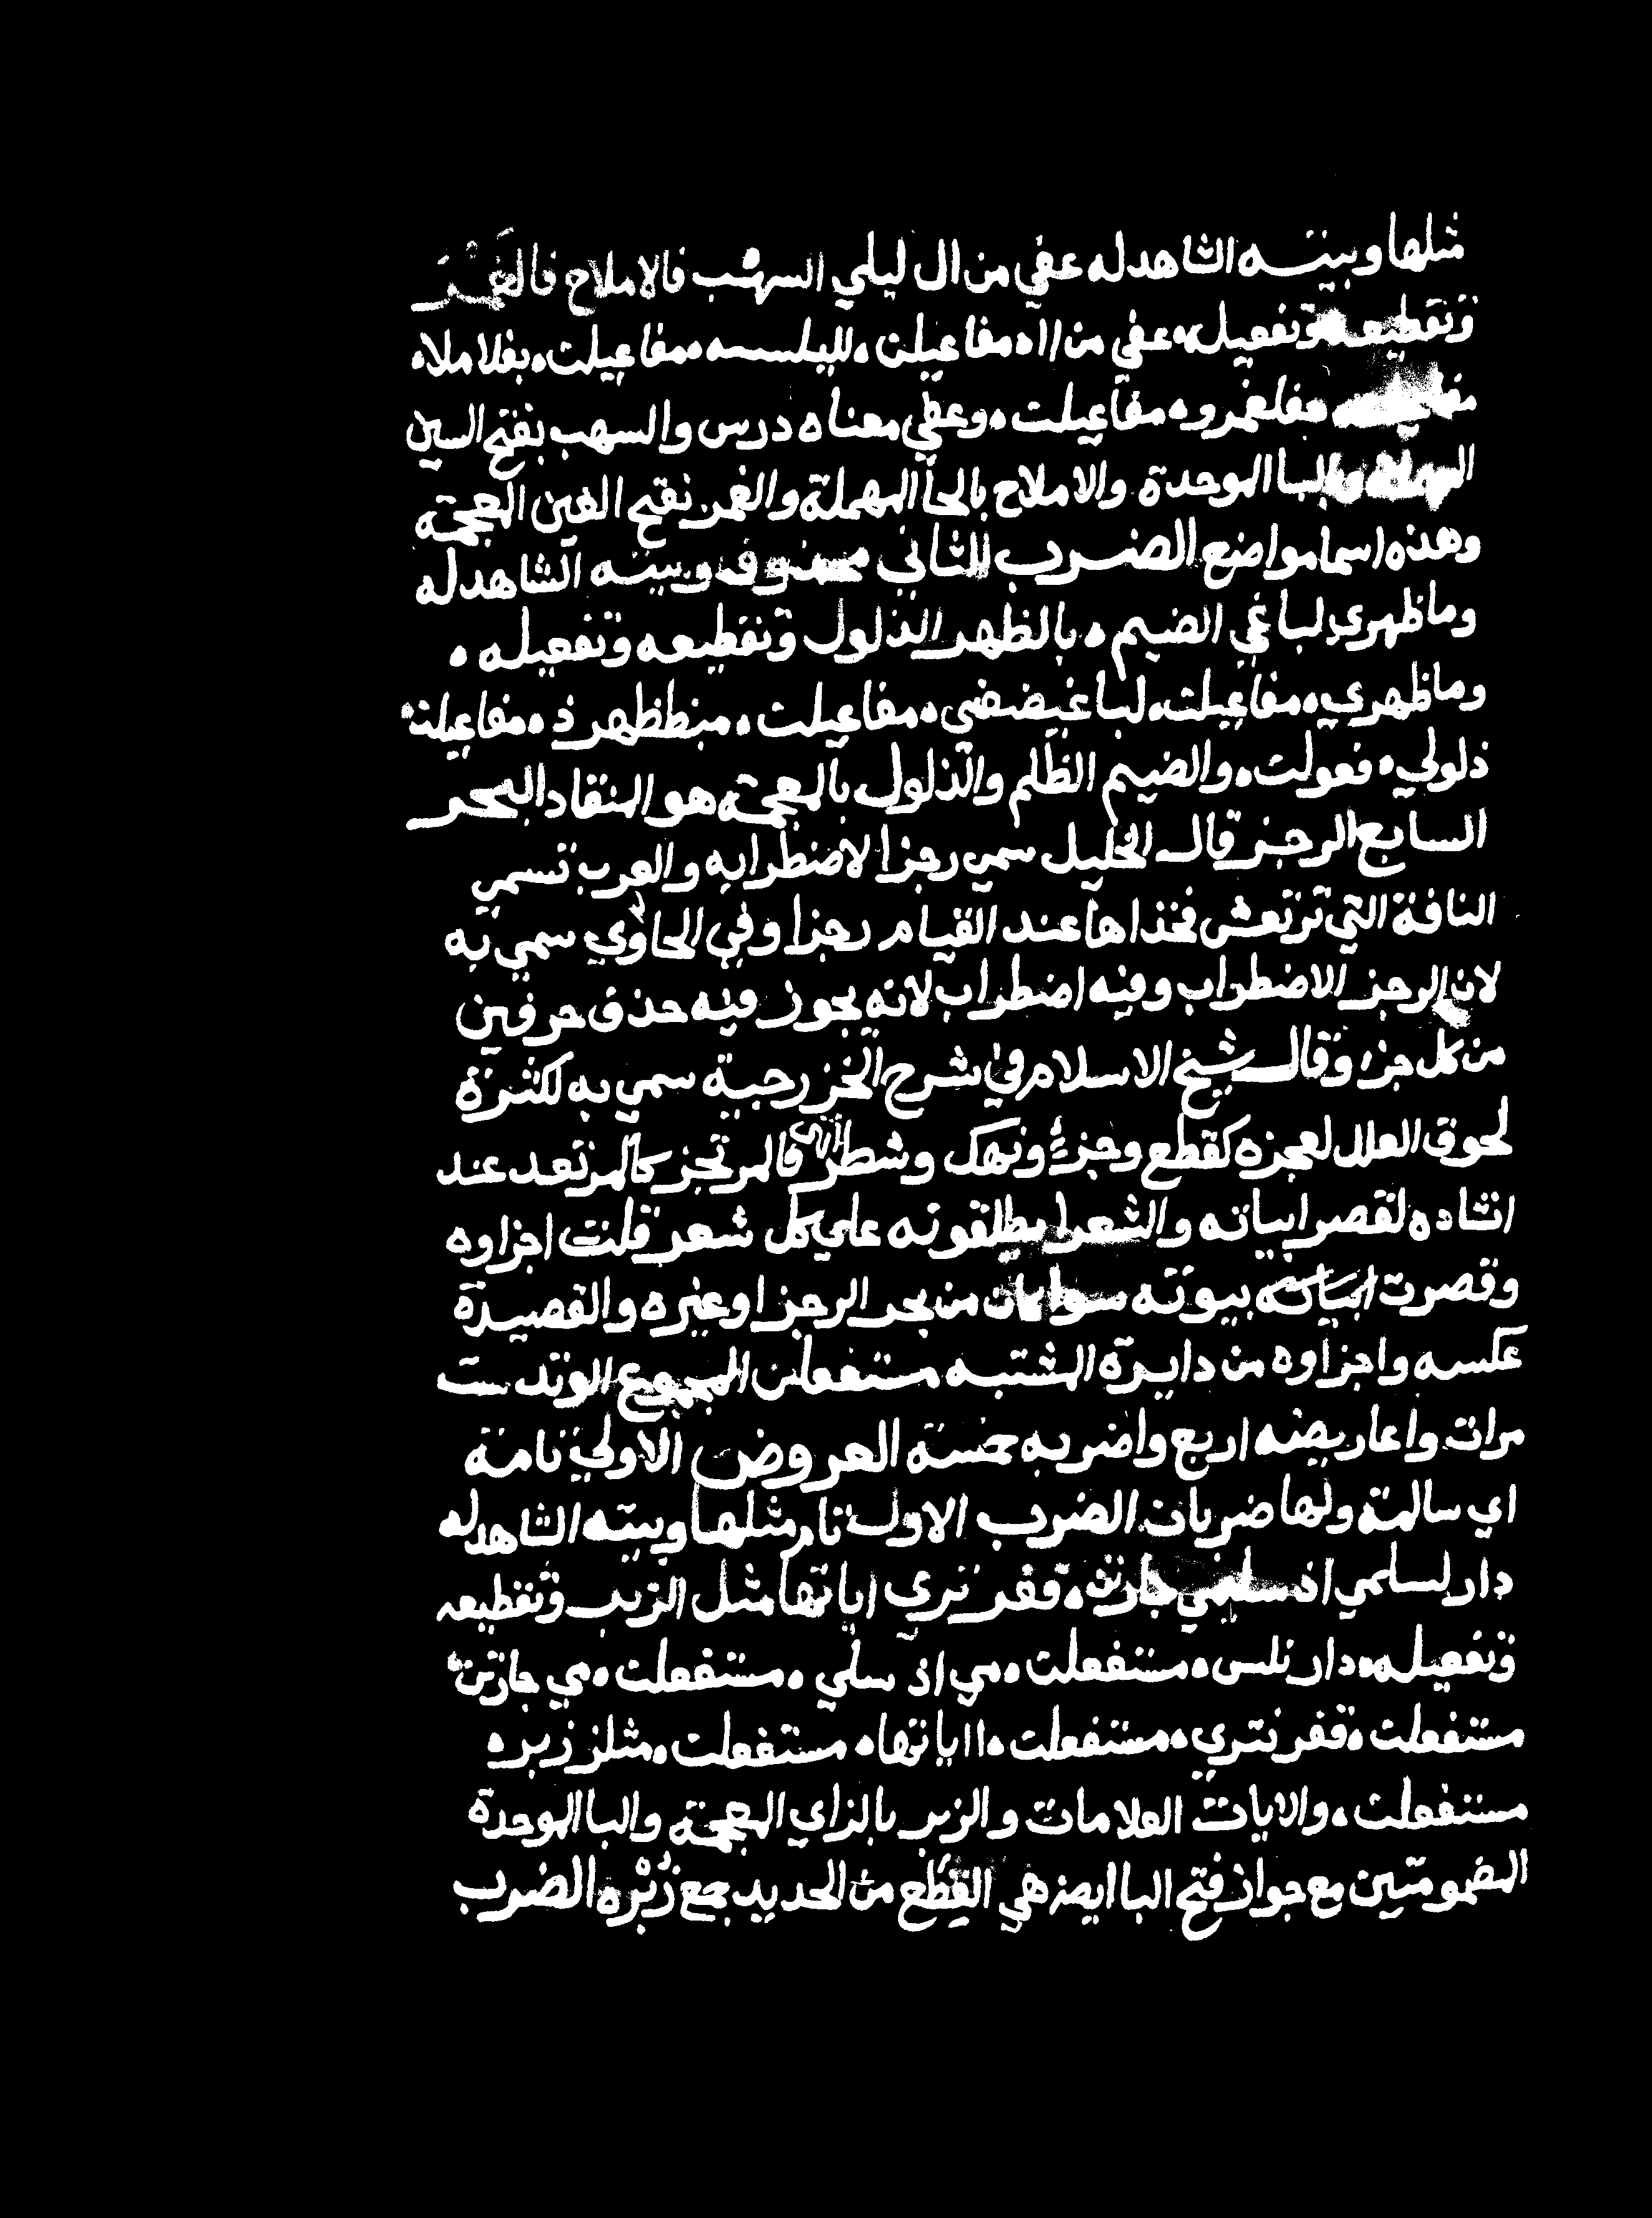 مثلها وبيته الشاهد له عفي من ال ليلي السهب فالاملاح فالغمر
وتقطيعه وتفعيله عفي من اا ه مفاعيلن ه لليلسسه ه مفاعيلن ه بفلا ملا ه
مفاعيلن ه حفلغمرو ه مفاعيلن ه وعفي معناه درس والسهب بفتح السين
المهملة وبالبا الموحدة والاملاح بالحا المهملة والغمر بفتح الغين المعجمة
وهذه اسما مواضع الضرب الثاني محذوف وبيته الشاهد له
وما ظهري لباغي الضيم ه بالظهر الذلول وتقطيعه وتفعيله ه
وما ظهري ه مفاعيلن ه لبا غيضضي ه مفاعيلن ه مبظظهرذ ه مفاعيلن ه
ذلولي ه فعولن ه والضيم الظلم والذلول بالمعجمة هو المنقاد البحر
السابع الرجز قال الخليل سمي رجزا لاضطرابه والعرب تسمي
الناقة التي ترتعش فخذاها عند القيام رجزا وفي الحاوي سمي به
لان الرجز الاضطراب وفيه اضطراب لانه يجوز فيه حذف حرفين
من كل جزء وقال شيخ الاسلام في شرح الخزرجية سمي به لكثرة
لحوق العلل لعجزه كقطع وجزء ونهك وشطر فالمرتجز كالمرتعد عند
انشاده لقصر ابياته والشعرا يطلقونه علي كل شعر قلت اجزاوه
وقصرت بيوته سوا كان من بحر الرجز او غيره والقصيدة
عكسه واجزاوه من دايرة المشتبه مستفعلن المجموع الوتد ست
مرات واعاريضه اربع واضربه خمسة العروض الاولي تامة
اي سالمة ولها ضربان الضرب الاول تام مثلها وبيته الشاهد له
دار لسلمي اذ سليمي جارتن ه قفر تري اياتها مثل الزبر وتقطيعه
وتفعيله ه دار نلس ه مستفعلن ه مي اذ سلي ه مستفعلن ه مي جارتن ه
مستفعلن ه قفر نتري ه مستفعلن ه اا ياتها ه مستفعلن ه مثلز زبر ه
مستفعلن ه والايات العلامات والزبر بالزاي المعجمة والبا الموحدة
المضمومتين مع جواز فتح البا ايضا هي القطع من الحديد جمع زبره الضرب